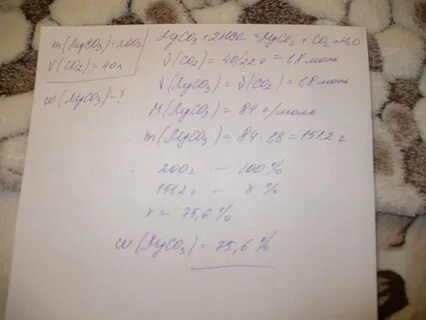 m(MgCO3)=200г
V(CO2)=40л
w(MgCO3)-?
MgCO3+2HCl=MgCl2+CO2+H2O
V(CO2)=40/22,4=1,8 моль
V(MgCO3)=V(CO2)=1,8 моль
M(MgCO3)=84 г/моль
m(MgCO3)=84·1,8=151,2 г
200г — 100%
151,2г — x%
x = 75,6%
w(MgCO3)=75,6%